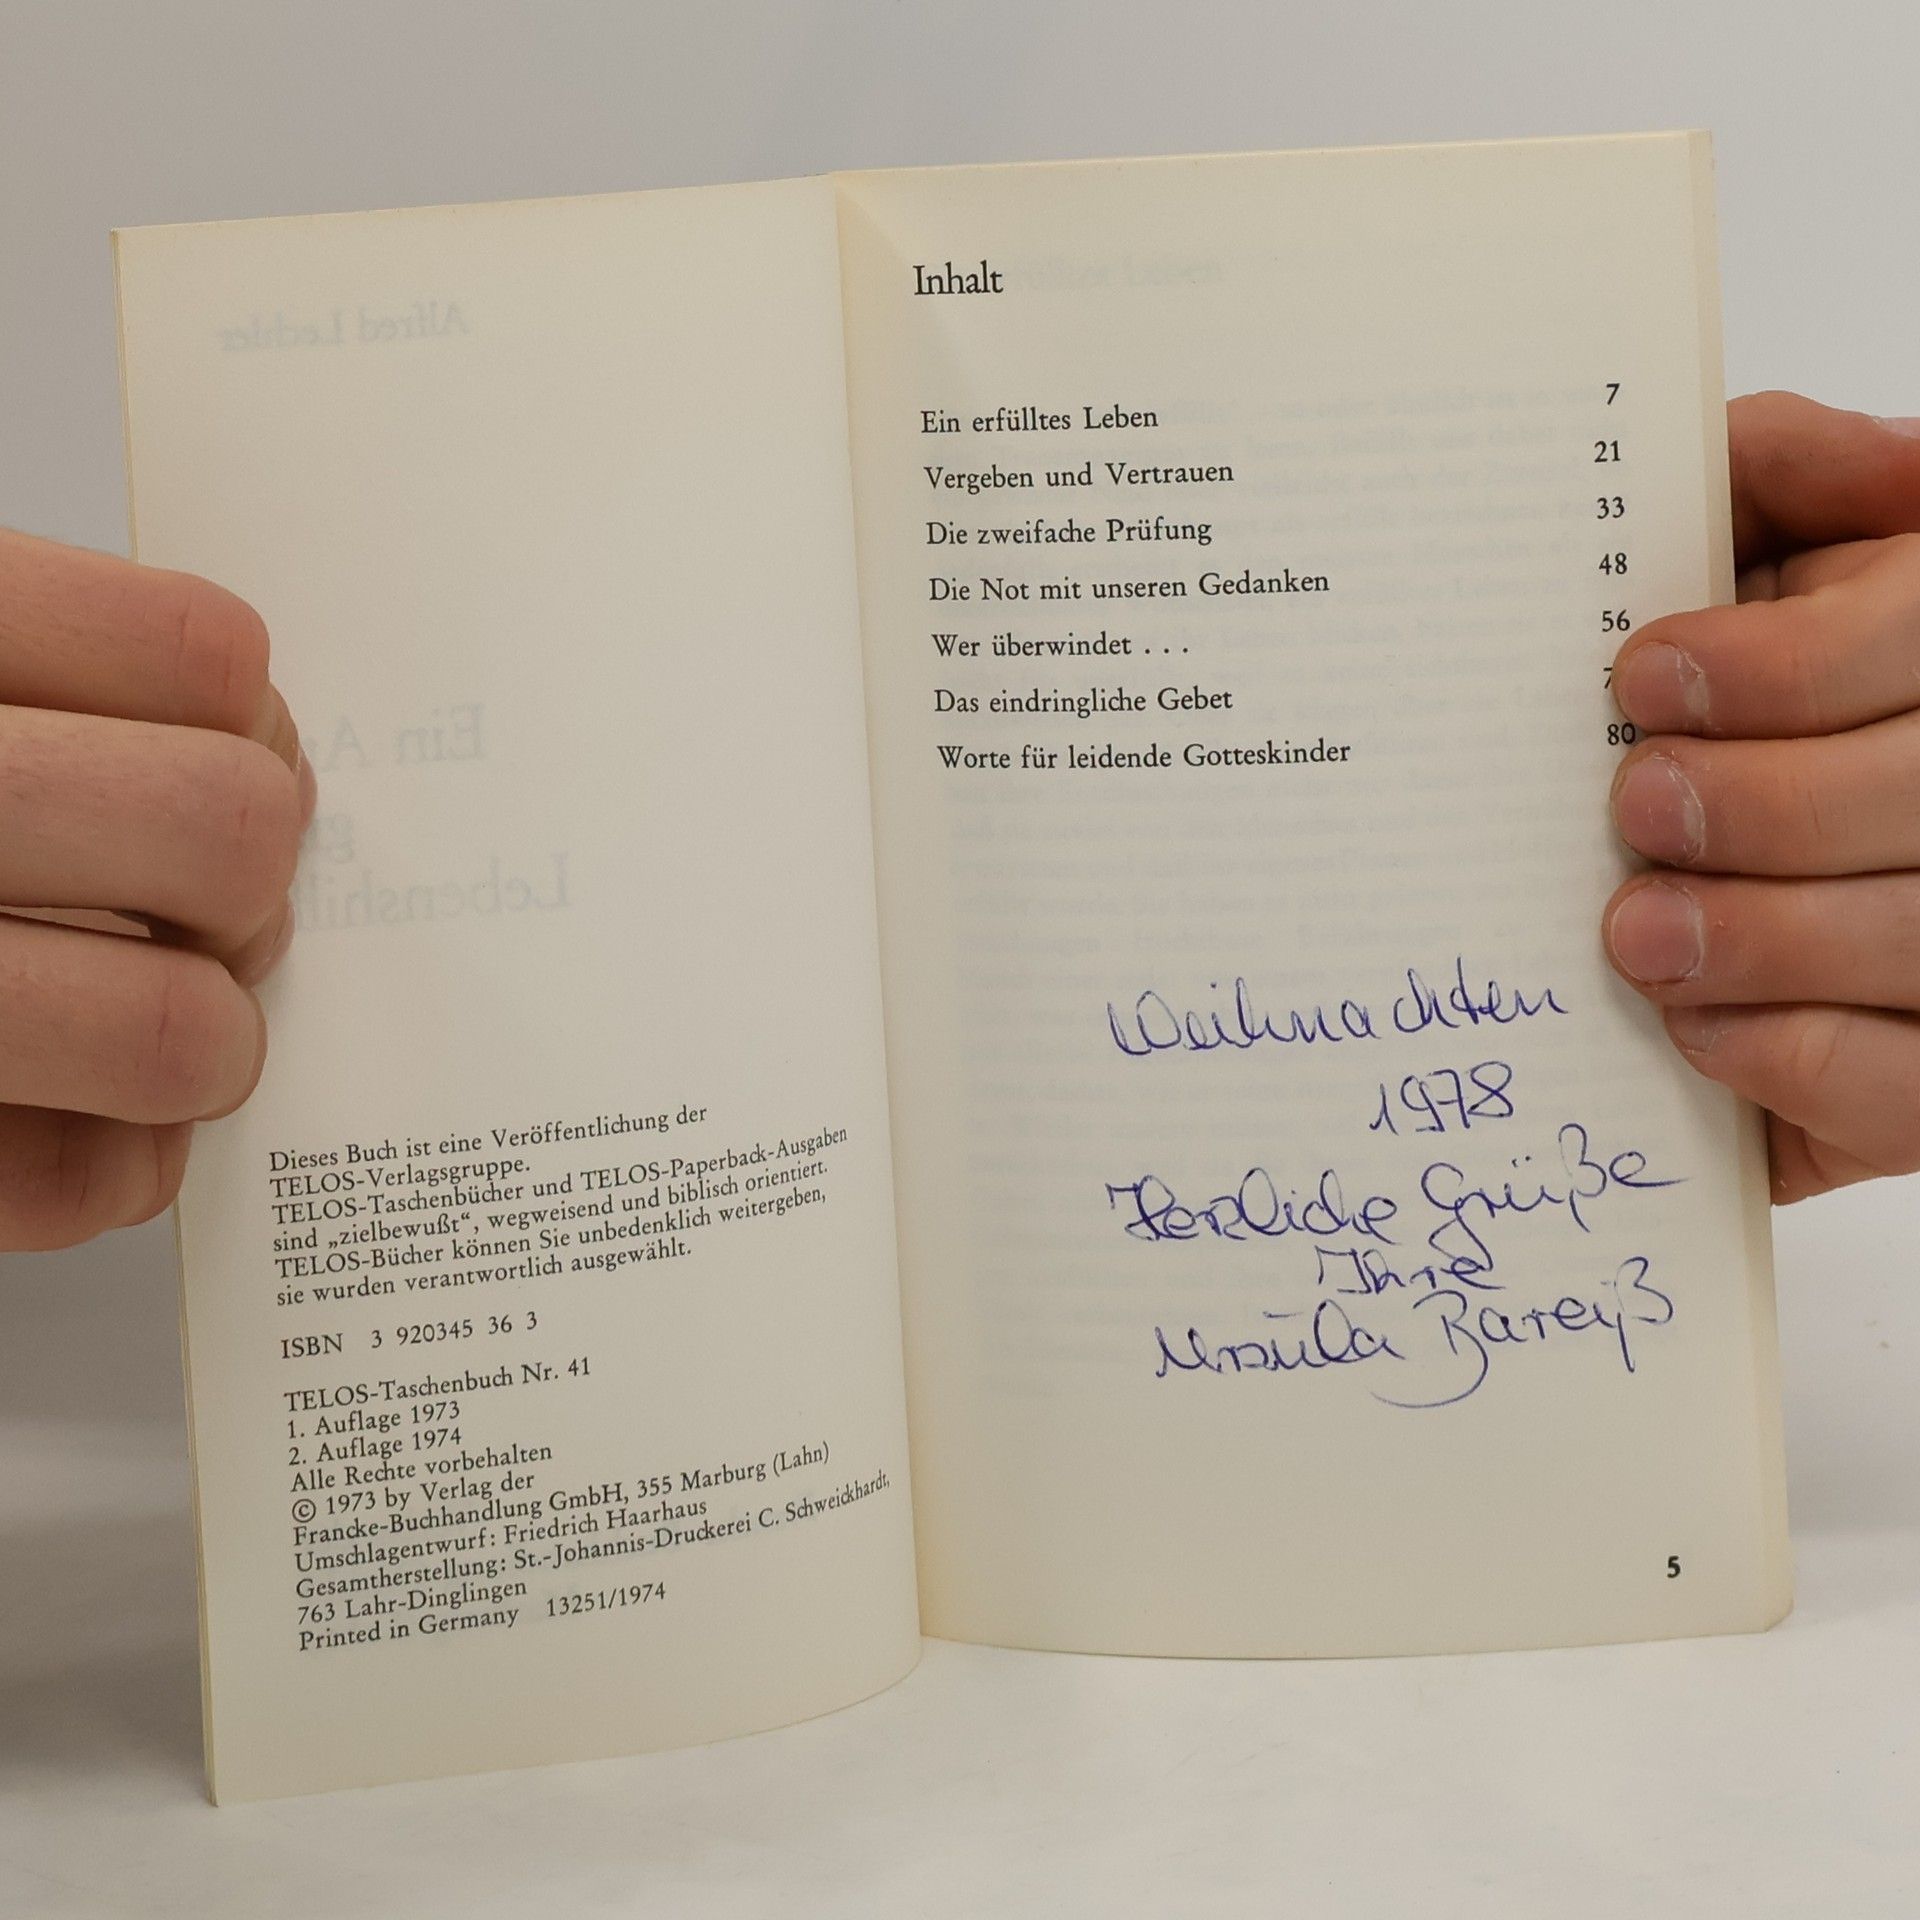 Dieses Buch ist eine Veröffentlichung der
TELOS-Verlagsgruppe.
TELOS-Taschenbücher und TELOS-Paperback-Ausgaben
sind „zielbewußt“, wegweisend und biblisch orientiert.
TELOS-Bücher können Sie unbedenklich weitergeben,
sie wurden verantwortlich ausgewählt.
ISBN 3 920345 36 3
TELOS-Taschenbuch Nr. 41
1. Auflage 1973
2. Auflage 1974
Alle Rechte vorbehalten
© 1973 by Verlag der
Francke-Buchhandlung GmbH, 355 Marburg (Lahn)
Umschlagentwurf: Friedrich Haarhaus
Gesamtherstellung: St.-Johannis-Druckerei C. Schweickhardt,
763 Lahr-Dinglingen
Printed in Germany 13251/1974
Inhalt
Ein erfülltes Leben 7
Vergeben und Vertrauen 21
Die zweifache Prüfung 33
Die Not mit unseren Gedanken 48
Wer überwindet . . . 56
Das eindringliche Gebet
Worte für leidende Gotteskinder 80
Weihnachten
1978
Herzliche Grüße
Ihre
Ursula Bareiß
5